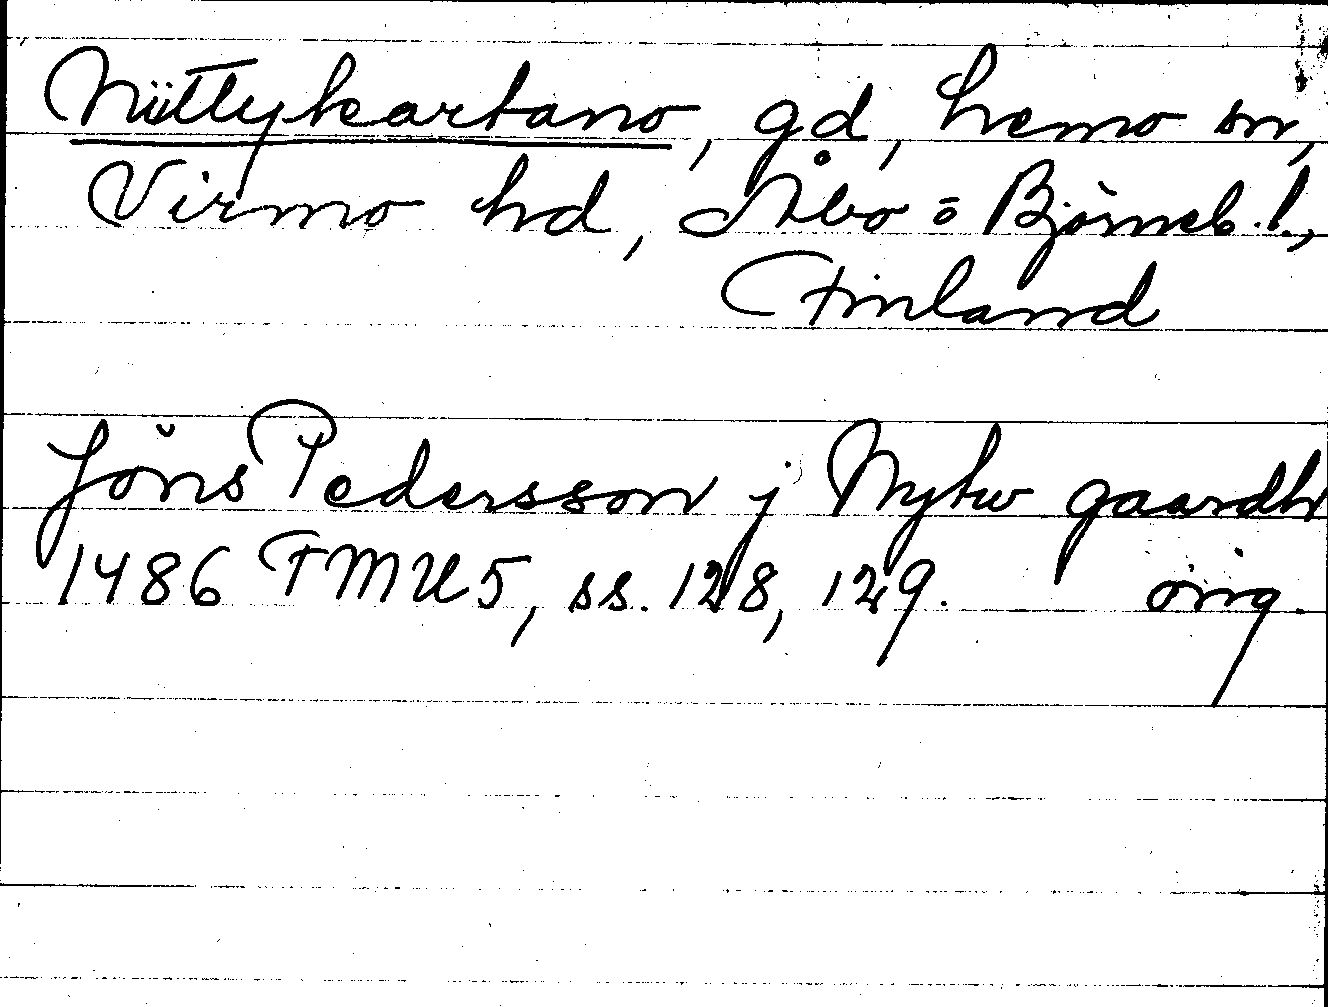 Niittykartano, gd, Lemo sn,
Virmo hd, Åbo o Björneb. l.,
Finland
Jöns Pedersson j Nytw gaardh
1486 FMU 5, ss. 128, 129. orig.